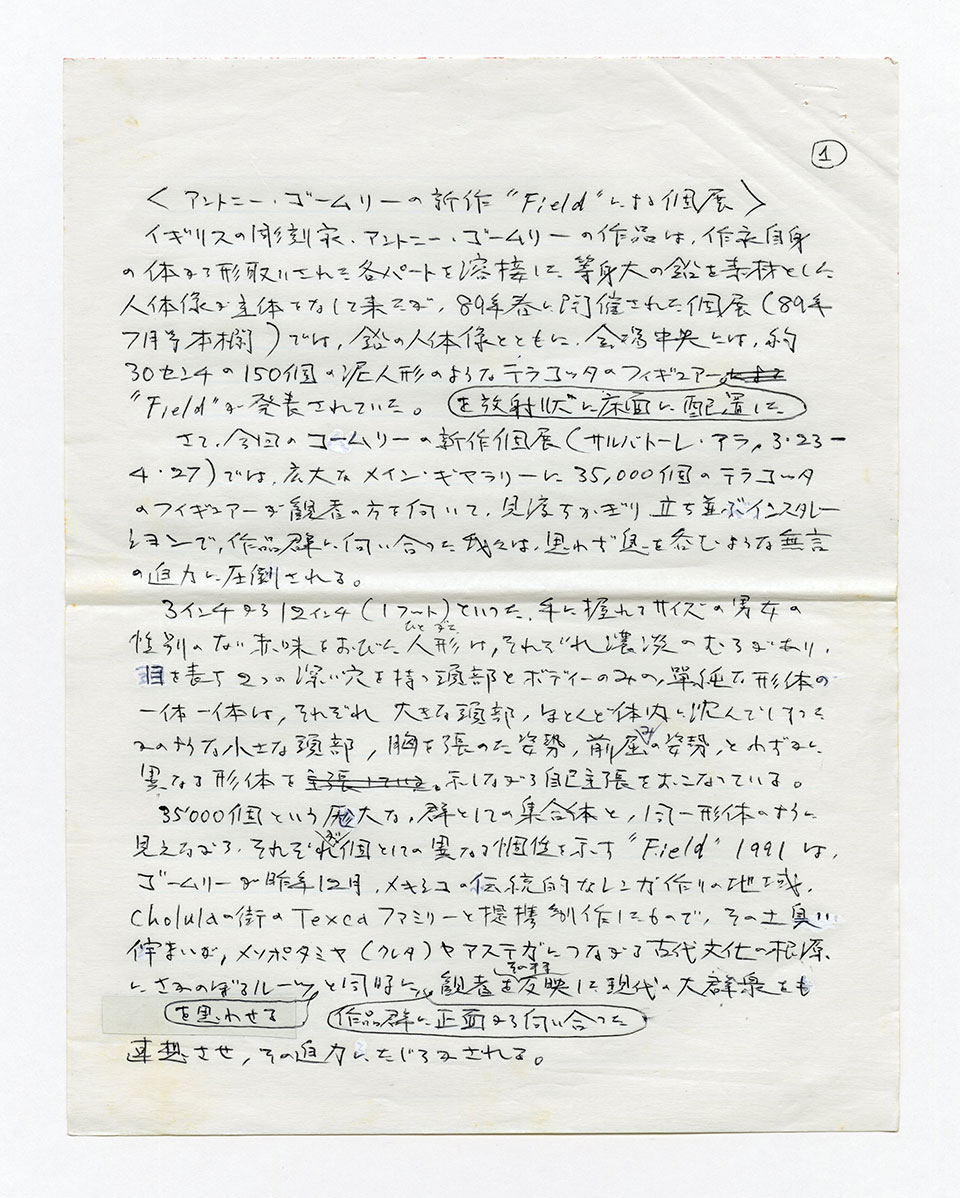 1
〈アントニー・ゴームリーの新作 "Field" による個展〉
イギリスの彫刻家、アントニー・ゴームリーの作品は、作家自身
の体から形取りされた各パートを溶接した等身大の鉛を素材とした
人体像が主体をなして来たが、89年春に開催された個展(89年
7月号本欄)では、鉛の人体像とともに、会場中央には、約
30センチの150個の泥人形のようなテラコッタのフィギュアー
"Field"が発表されていた。 を放射状に床面に配置した
さて、今回のゴームリーの新作個展(サルバトーレ・アラ, 3・23-
4・27)では、広大なメイン・ギャラリーに35,000個のテラコッタ
のフィギュアーが観者の方を向いて、見渡すかぎり立ち並ぶインスタレー
ションで、作品群に向い合った我々は、思わず息を呑むような無言
の迫力に圧倒される。
3インチから12インチ(1フット)といった、手に握れてサイズの男女の
性別のない赤味をおびた人形は、それぞれ濃淡のむらがあり、
ひとがた
目を表す2つの深い穴を持つ頭部とボディーのみの、単純な形体の
一体一体は、それぞれ大きな頭部、ほとんど体内に沈んでしまった
かのような小さな頭部,胸を張った姿勢,前屈みの姿勢,とわずかに
異なる形体を主張している。示しながら自己主張をおこなっている。
35'000個という厖大な、群としての集合体と、同一形体のように
見えながら、それぞれが個としての異なる個性を示す "Field" 1991は、
ゴームリーが昨年12月,メキシコの伝統的なレンガ作りの地域、
Cholulaの街のTexcaファミリーと提携制作したもので、その土臭い
佇まいが,メソポタミヤ(クレタ)やアステカにつながる古代文化の根源
にさかのぼるルーツと同時に、観者を反映した現代の大群衆をも
そのまま
を思わせる 作品群に正面から向い合った
連想させ,その迫力にたじろがされる。